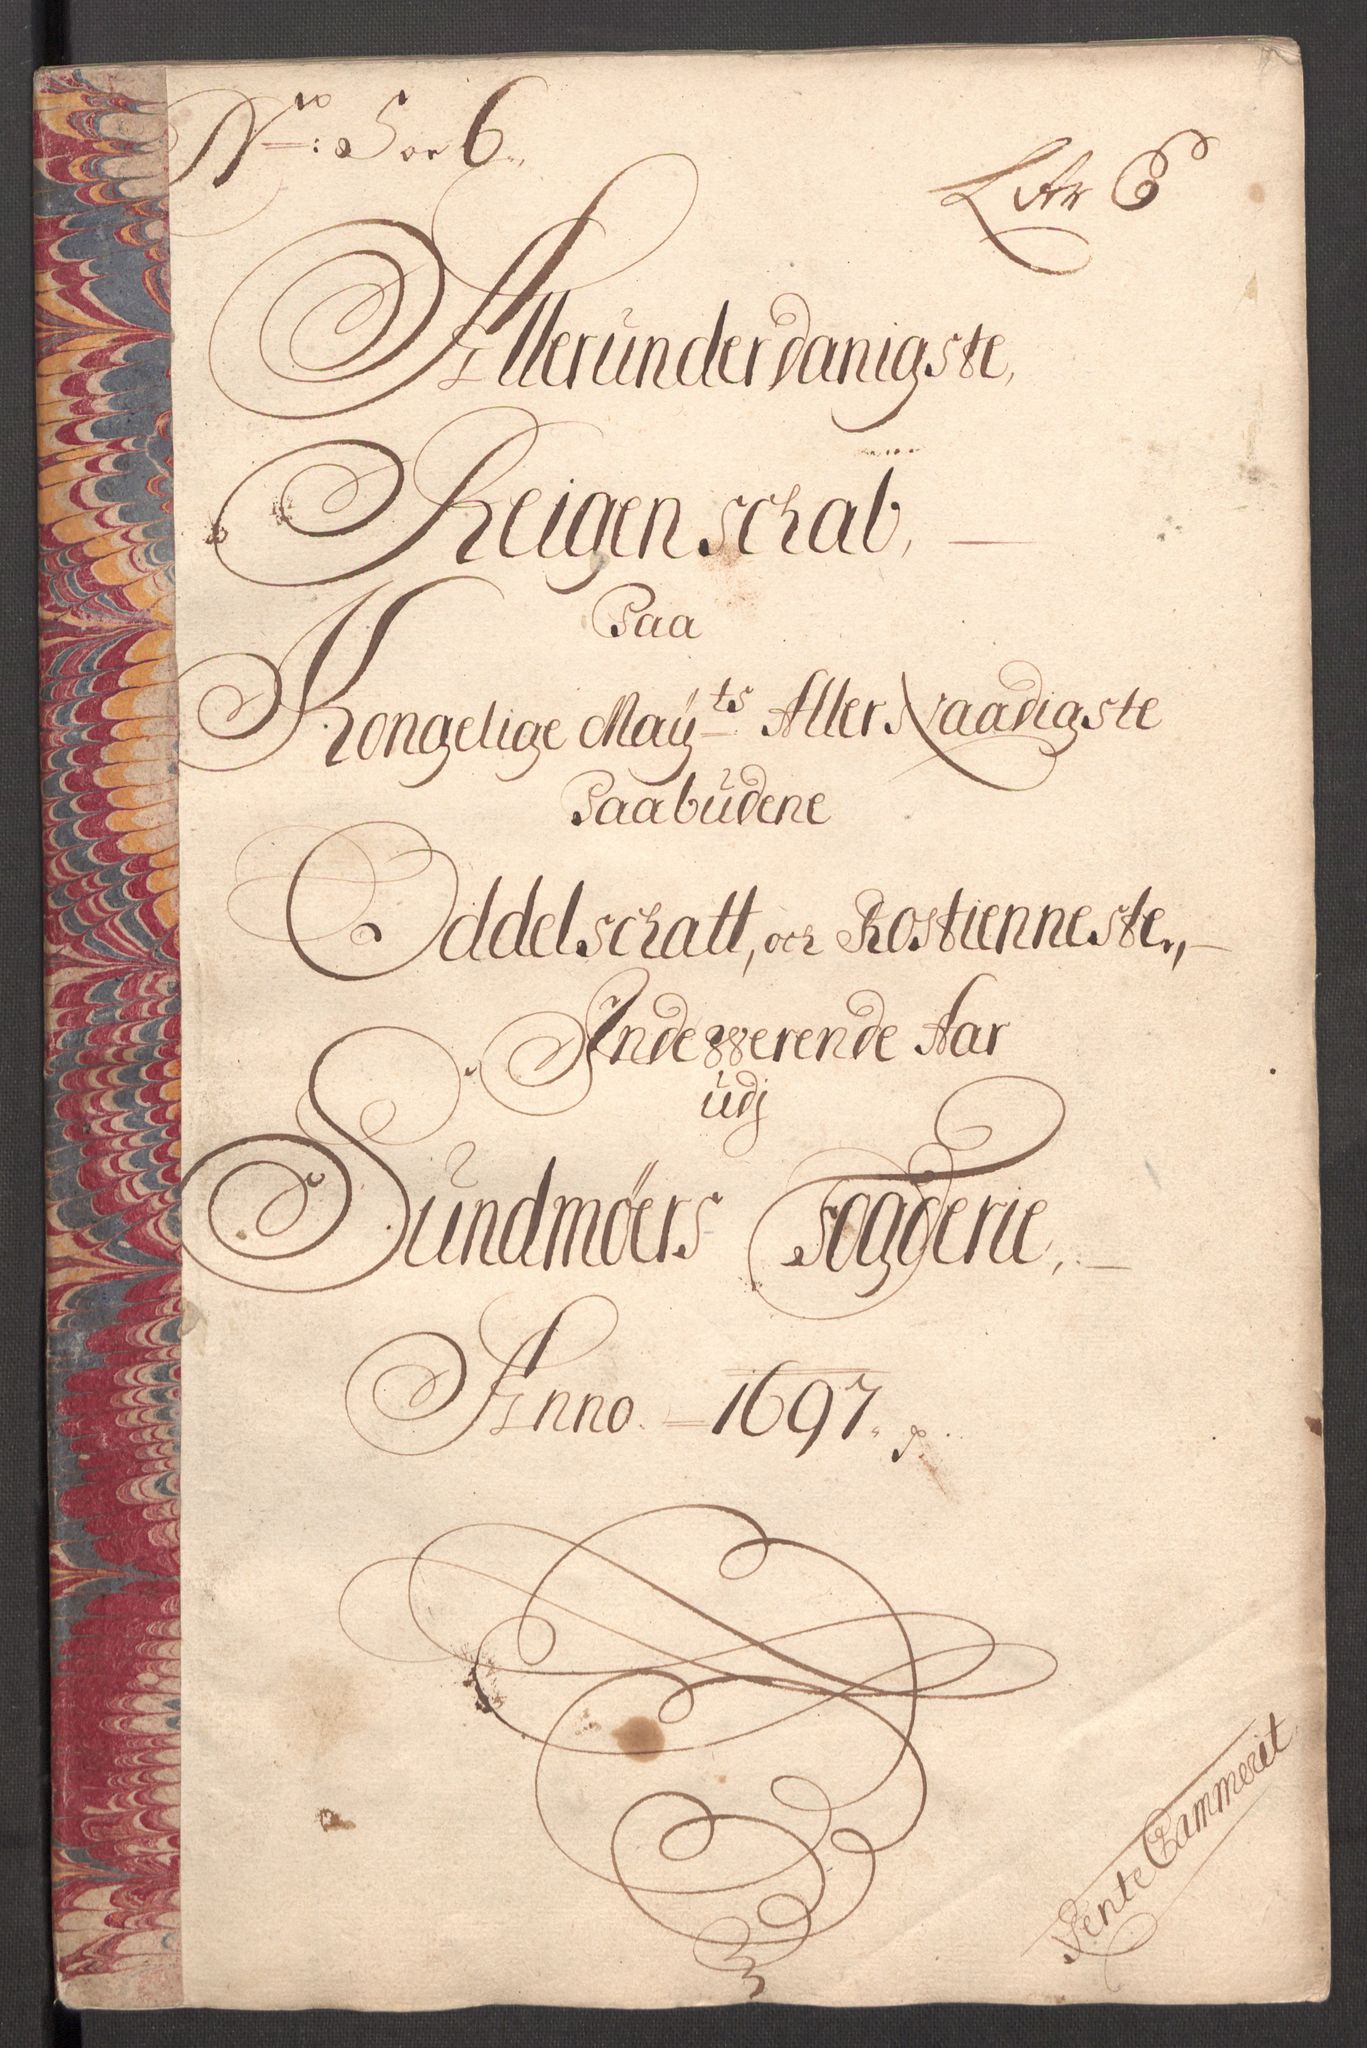 No: 5 or 6.
Litr E
Alleründerdanigste,
Reigenschab,
Paa
Kongelige Maÿts Aller Naadigste
Paabüdene
Oddelschatt, och Rostienneste,,
Indewerende Aar
üdj
Sündmöers Fogderie,
Anno. 1697. p.
Rente Cammerit